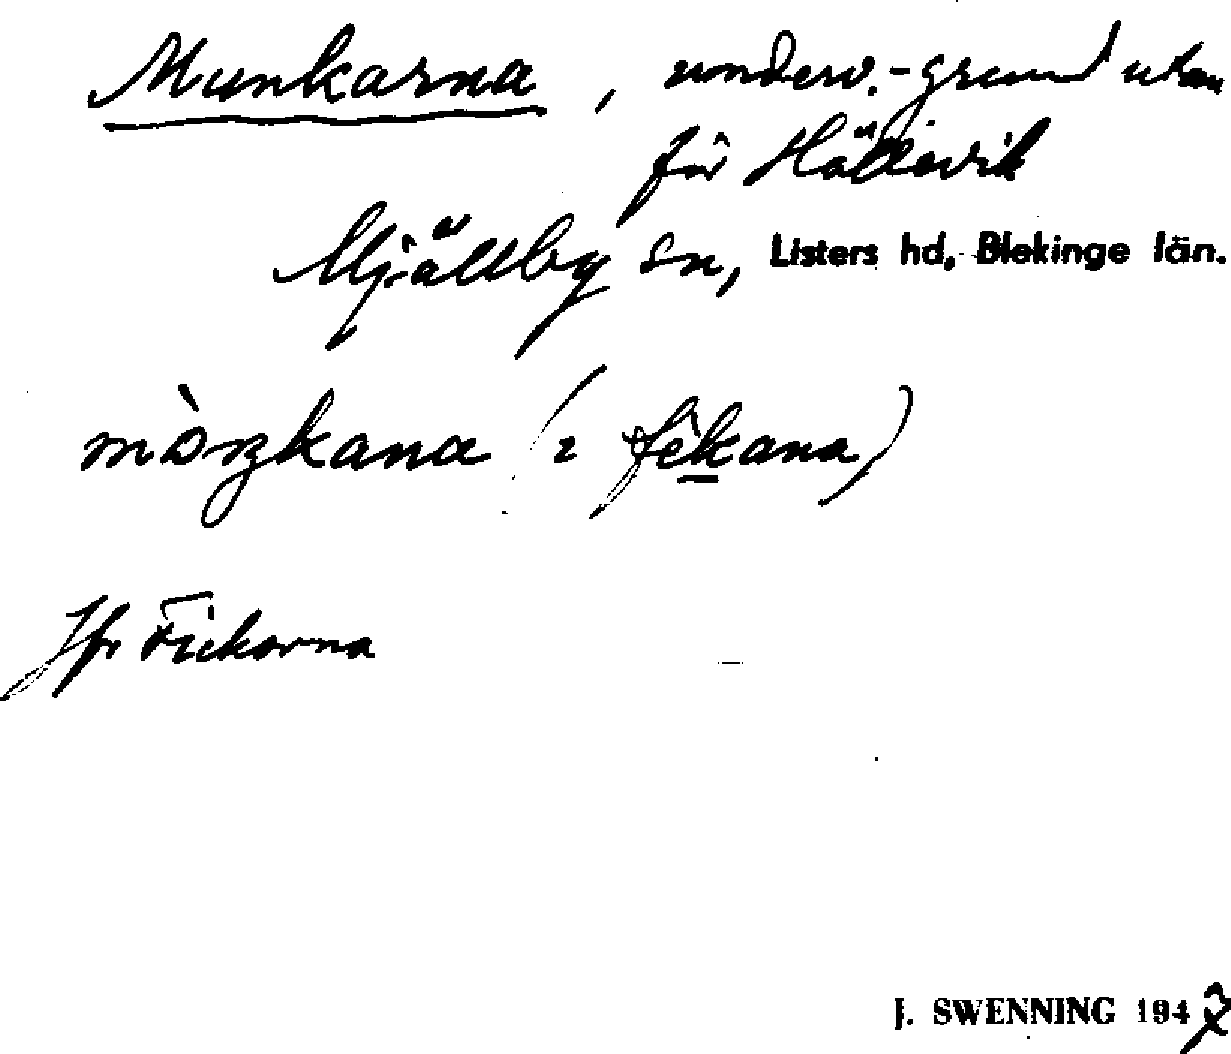 Munkarna, underv.-grund utan
för Hällevik
Mjällby sn, Listers hd, Blekinge län.
mòŋkana (: fêkana)
Jfr Fickorna
J. SWENNING 1942